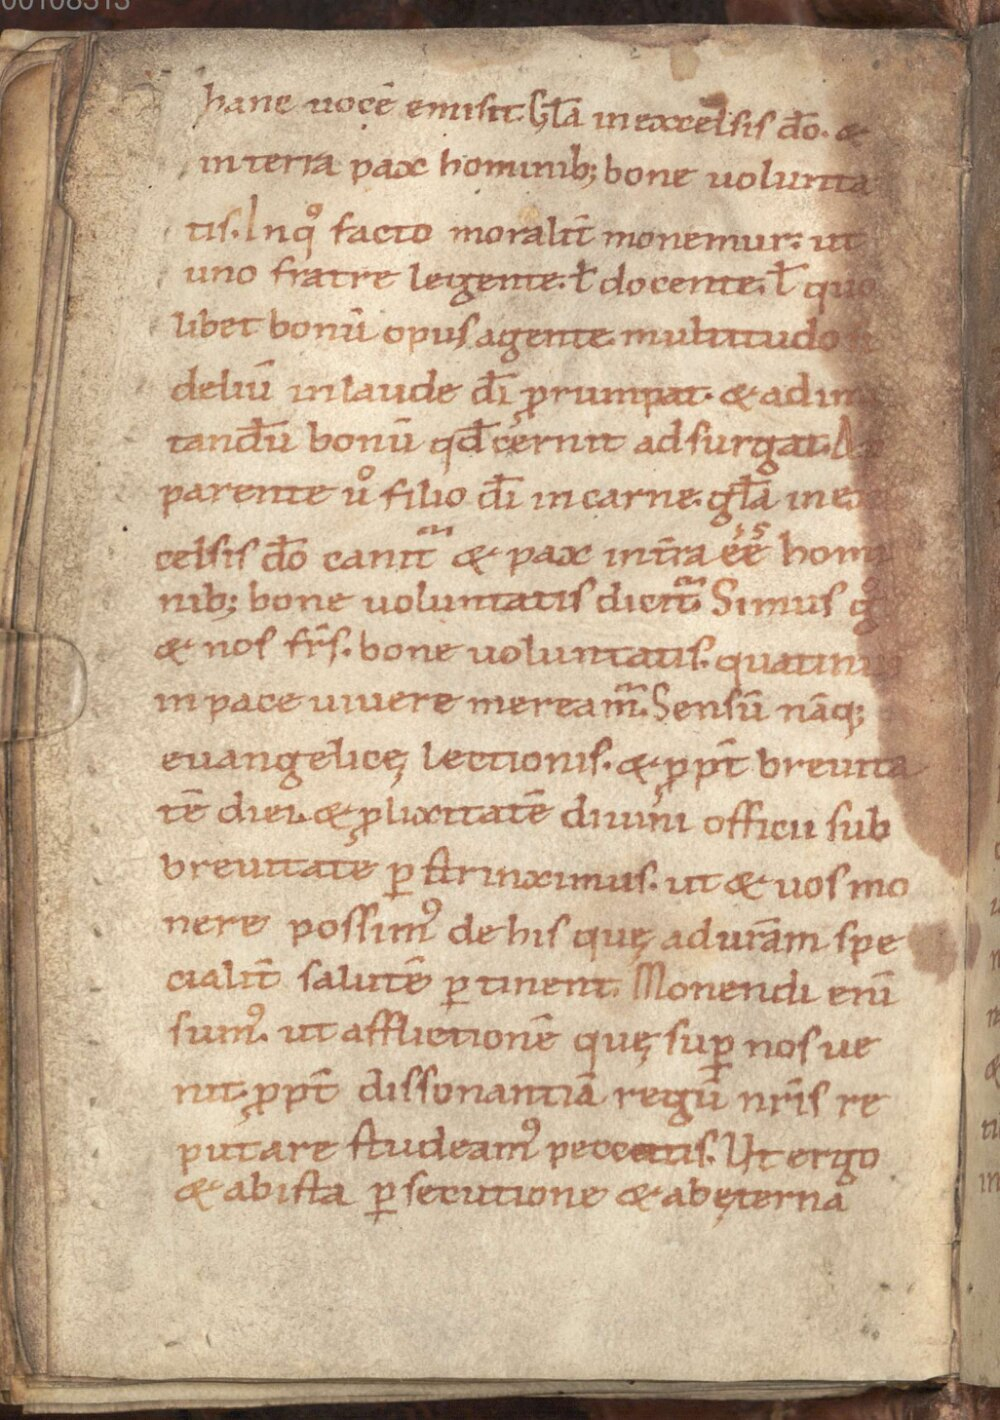 00108313
hanc uocē emisit. Gła in excelsis dō. &
in terra pax hominib; bone uolunta
tis. In qͦ facto moralit̄ monemur. ut
uno fratre legente. ł docente. ł quo
libet bonū opus agente. multitudo
deliū in laude dī ꝓrumpat. & ad imi
tandū bonū qđ cernit adsurgat. Ap
parente ůo filio dī in carne. gła in ex
celsis dō canit̄ & pax in tr̄a ēē homi
nib; bone uoluntatis dicit̄. Simus gͦ
& nos fr̄s. bone uoluntatis. quatinus
in pace uiuere meream̄. Sensū nāq;
euangelicę lectionis. & ꝓpt̄ breuita
tē diei. & ꝓlixitatē diuini officii sub
breuitate ꝑstrinximus. ut & uos mo
nere possimꝰ de his quę ad ur̄am spe
cialit̄ salutē ꝑtinent. Monendi enī
sumꝰ. ut afflictionē quę suꝑ nos ue
nit. ꝓpt̄ dissonantiā regū nr̄is re
putare studeamꝰ peccatis. Ut ergo
& ab ista ꝑsecutione & ab ęterna